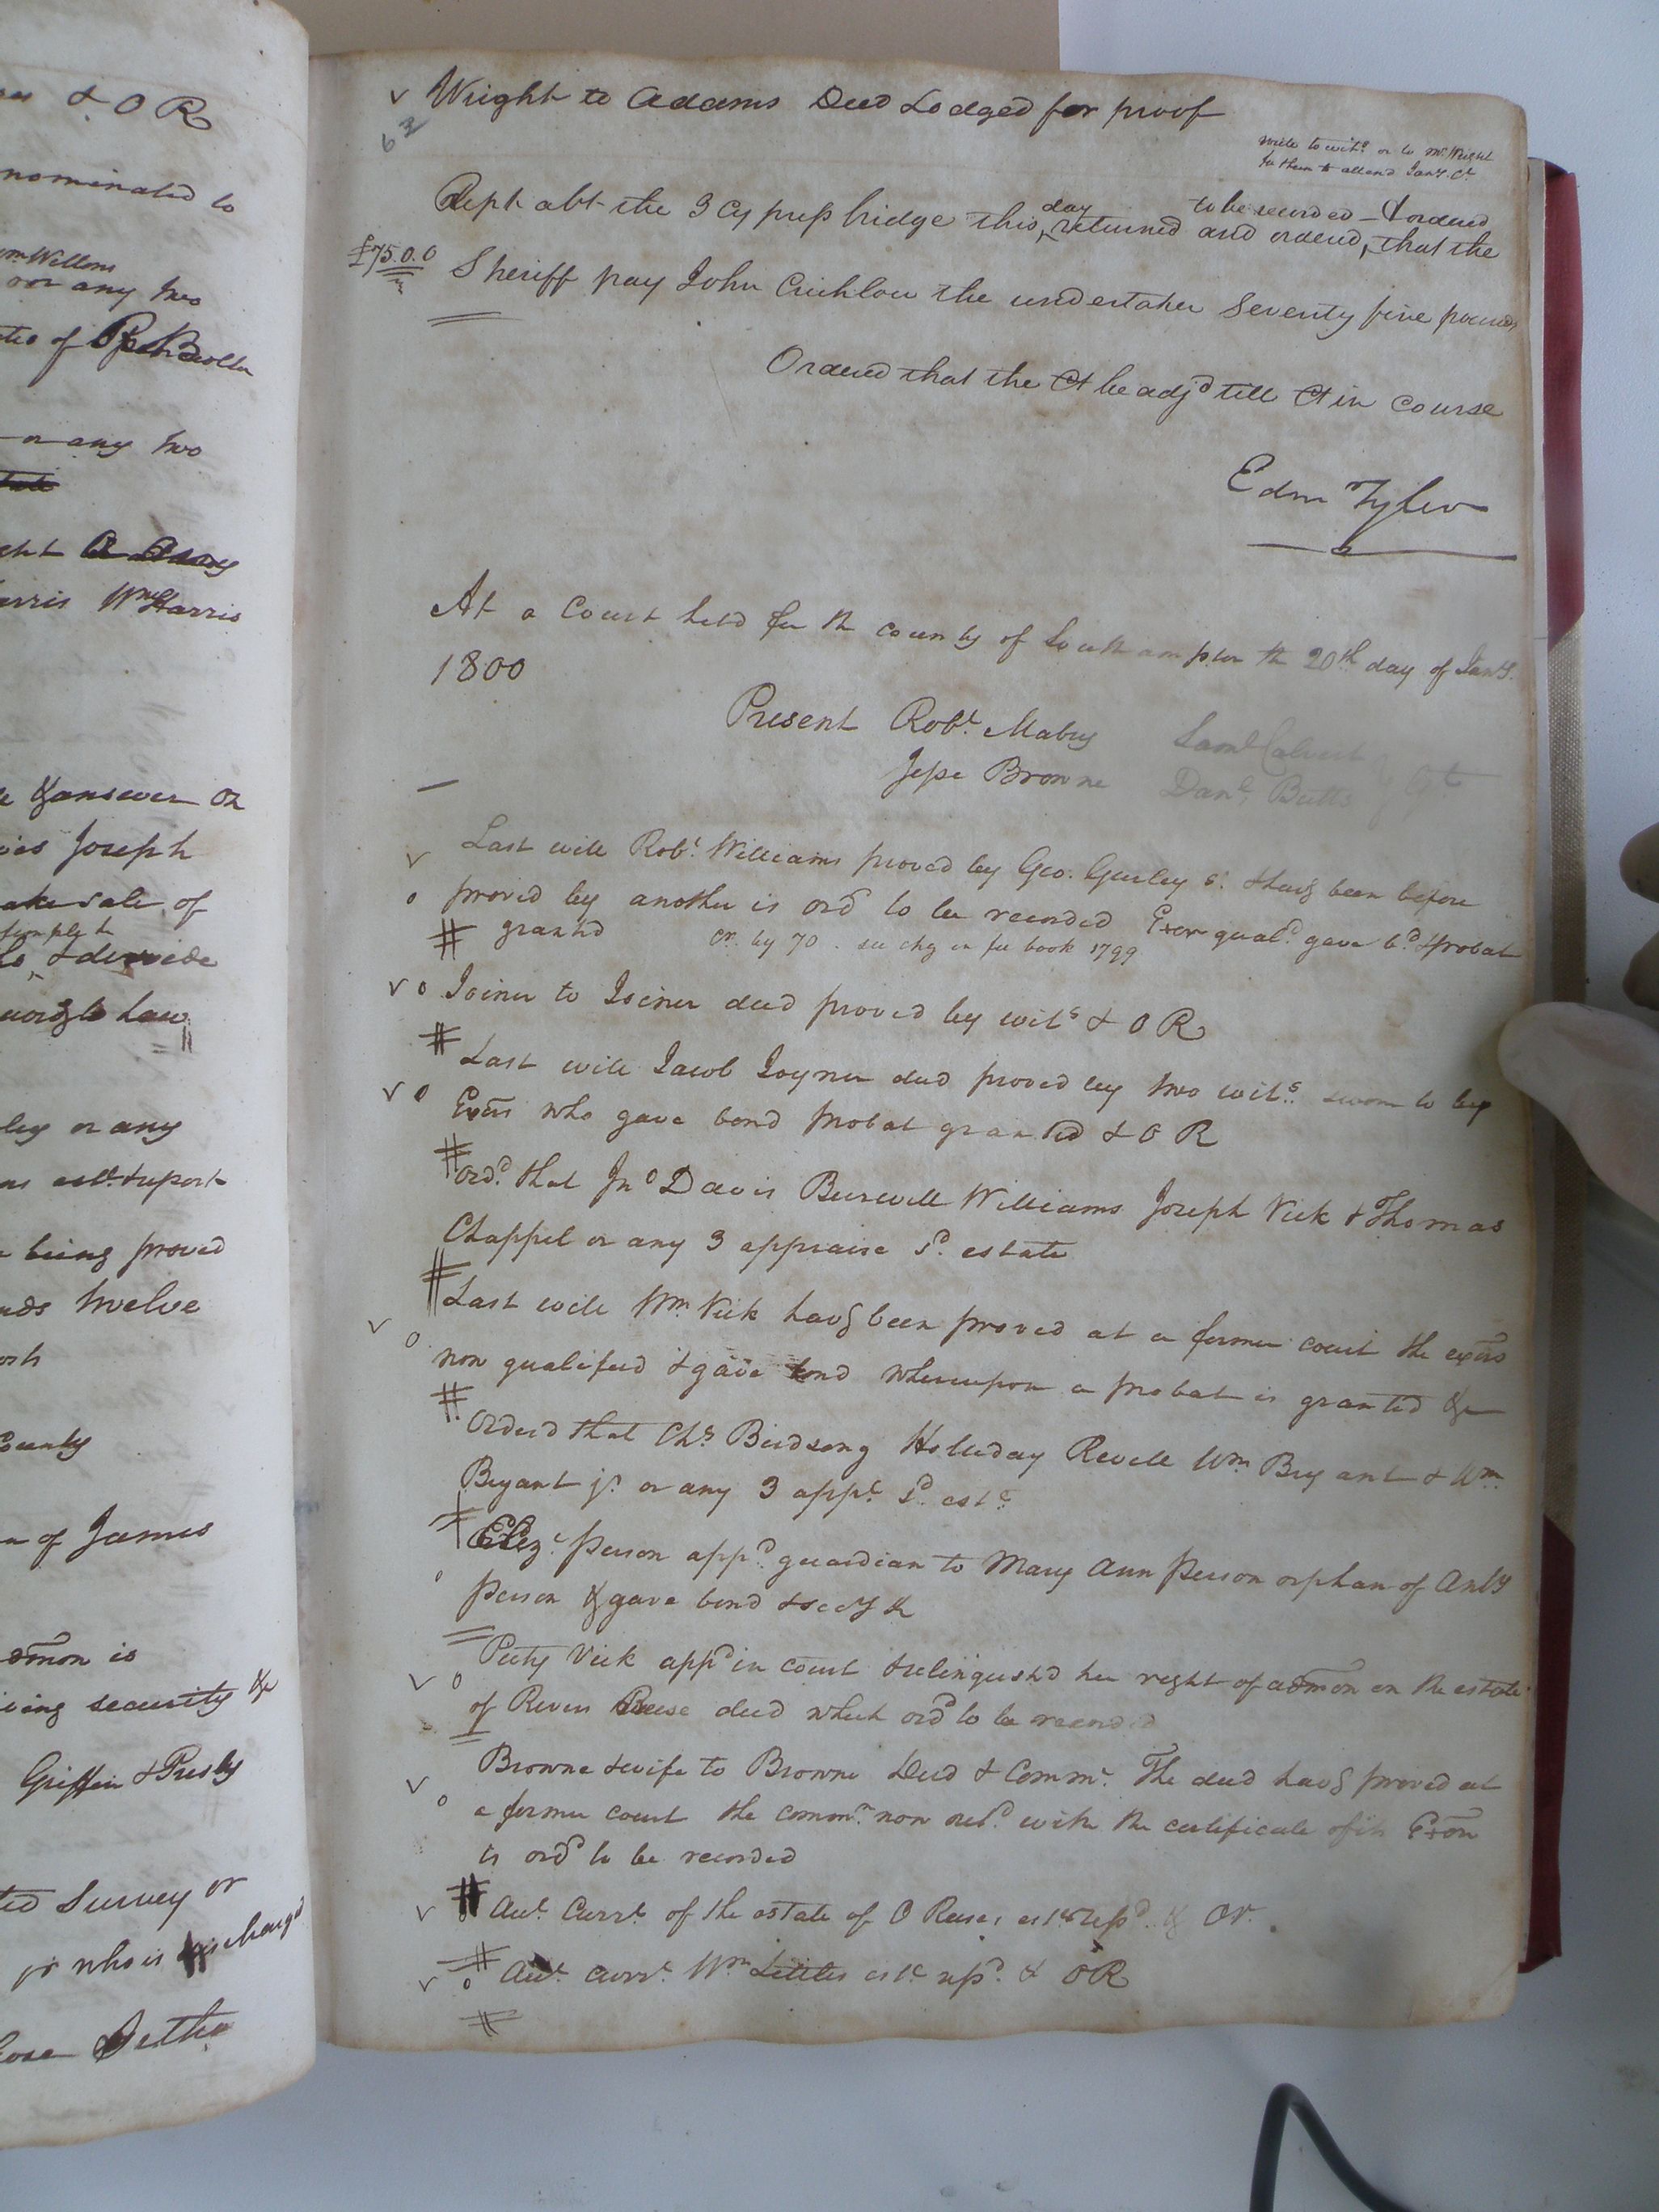 & O R
nominated to
Wm Wellons
or any two
or any two
Wm Harris
& answer or
Joseph
make sale of
& devide
to Law
or any
being proved
twelve
County
of James
admon is
giving security &c
Griffin & Presly
Survey or
jr who is
√ Wright to Adams Deed Lodged for proof
63
write to wits. or to Mr. Wright
for them to attend Jany. Ct.
day to be recorded - & ordered
Rept abt the 3 Cypress bridge this returned and ordered, that the
£75.0.0 Sheriff pay John Crichlow the undertaker Seventy five pounds
Ordered that the Ct be adjd till Ct in Course
Edm Tyler
At a Court held for the county of Southampton the 20th day of Jany.
1800
Present Robt. Mabry Saml Calvert
Jesse Browne Danl. Butts Gt
√ Last will Robt. Williams proved by Geo. Gurley s. & havg been before
o proved by another is ord to be recorded Exor quald. gave bd & probat
# granted Cr. by 70. see chg in fee book 1799
√ o Joiner to Joiner deed proved by wits & O R
# Last will Jacob Joyner decd proved by two wits. sworn to by
√ o Exors who gave bond probat granted & O R
# Ordd. that Jno Davis Burwell Williams Joseph Vick & Thomas
Chappel or any 3 appraise sd. estate
# Last will Wm Vick havg been proved at a former court the exors
√ o now qualified & gave bond whereupon a probat is granted &c
# Ordered that Chs Birdsong Holliday Revell Wm Bryant & Wm.
Bryant jr. or any 3 appr. sd. este.
Eliza. Person appd. guardian to Mary Ann Person orphan of Anty
o Person & gave bond & secy &c
Patty Vick appd in court & relinquishd her right of admon on the estate
√ o of Rivers Reese decd which ord to be recorded
√ Browne & wife to Browne Deed & Commn. The deed havg proved at
o a former court the commn. now retd. with the certificate of its Exon
is ord to be recorded
√ # Act. Currt. of the estate of O Reeses este retd. & Or.
√ o # Act. Currt. Wm Littles este retd. & O R
#